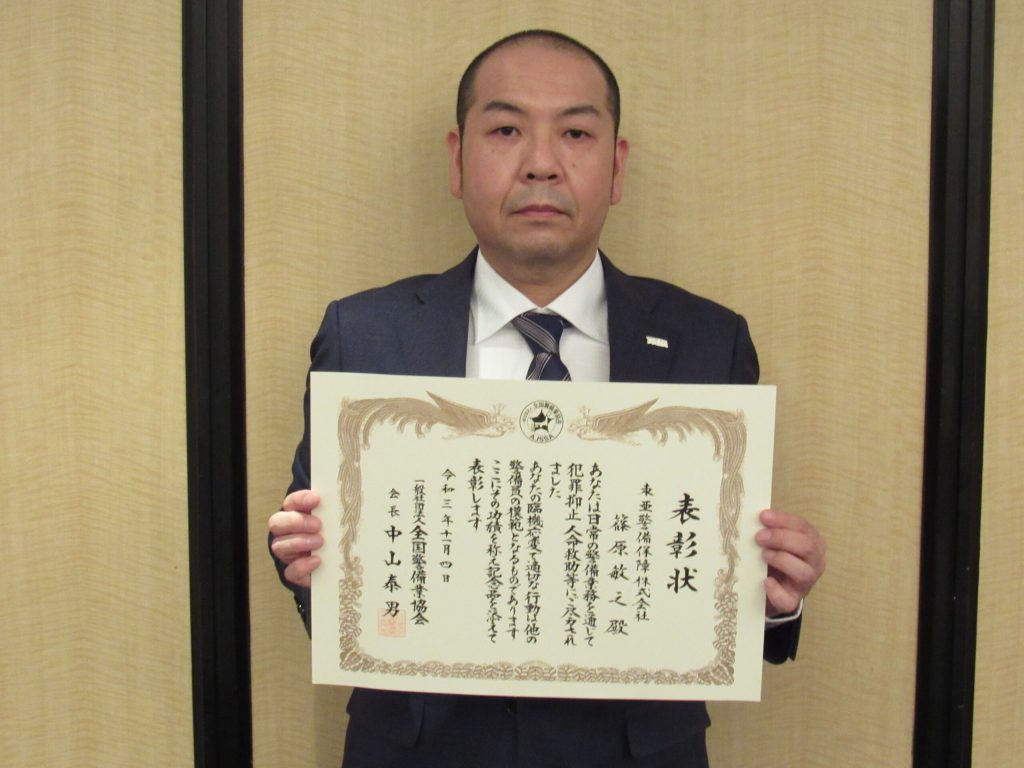 表彰状
東亜警備保障株式会社
篠原敏之殿
あなたは日常の警備業務を通して
犯罪抑止人命救助等に尽力され
ました
あなたの臨機応変で適切な行動は他の
警備員の模範となるものであります
ここにその功績を称え記念品を添えて
表彰します
令和三年十一月四日
一般社団法人全国警備業協会
会長中山泰男
AJSSA